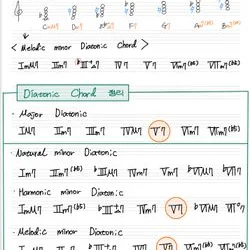 CmM7 Dm7 E♭+M7 F7 G7 Am7(b5) Bm7(b5)
< Melodic minor Diatonic Chord >
Im M7 IIm7 ♭III+M7 IV7 V7 VIm7(b5) VIIm7(b5)
Diatonic Chord 정리
· Major Diatonic
IM7 IIm7 IIIm7 IVM7 V7 VIm7 VIIm7(b5)
· Natural minor Diatonic
Im7 IIm7(b5) ♭IIIM7 IVm7 Vm7 ♭VIM7 ♭VII7
· Harmonic minor Diatonic
ImM7 IIm7(b5) ♭III+M7 IVm7 V7 ♭VIM7 VII°7
· Melodic minor Diatonic